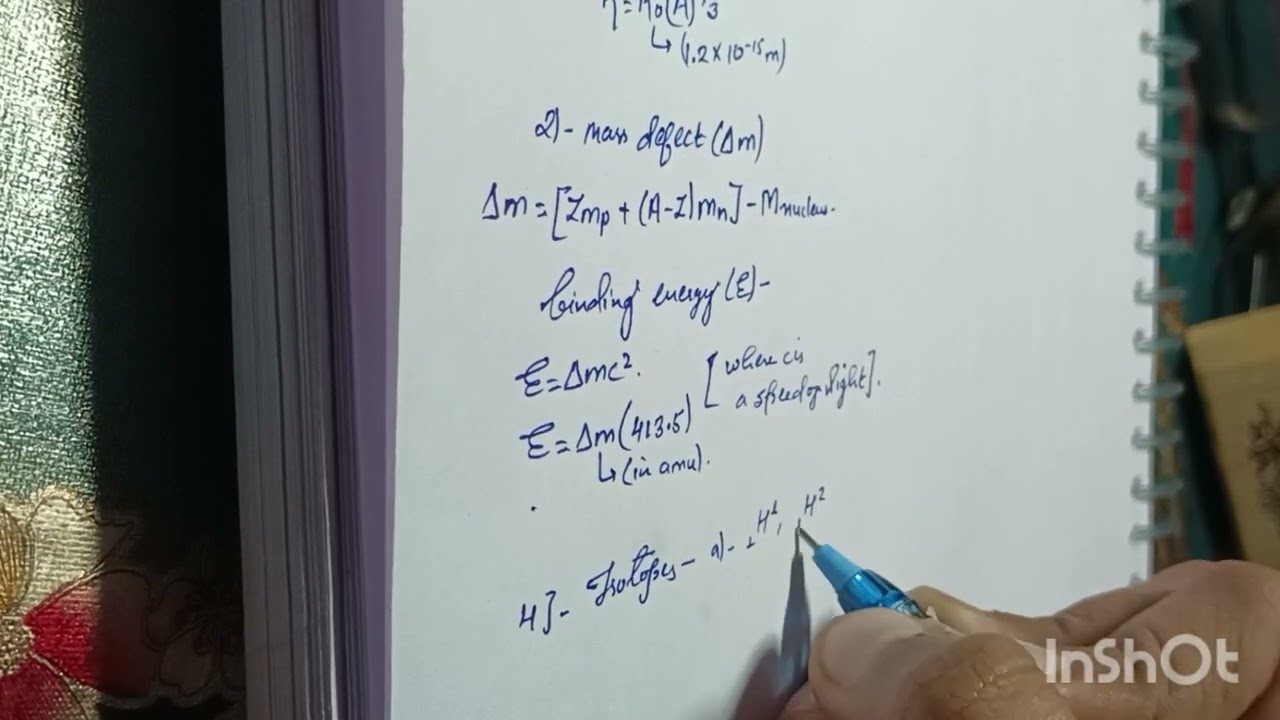 (1.2×10⁻¹⁵m)
2)- mass defect (Δm)
Δm = [Zmp + (A-Z)mn] - Mnucleus.
binding energy (E)-
E = Δmc². [where c is
a speed of light].
E = Δm(413.5)
↳ (in amu).
4]- Isotopes - a)- ₁H¹, H²
InShOt